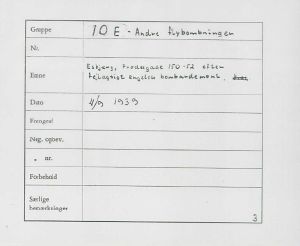 Gruppe 10 E - Andre flybombninger
Nr.
Esbjerg, Frodesgade 150-52 efter
Emne fejlagtigt engelsk bombardement.
Dato 4/9 1939
Fotograf
Neg. opbev.
" nr.
Forbehold
Særlige
bemærkninger
3